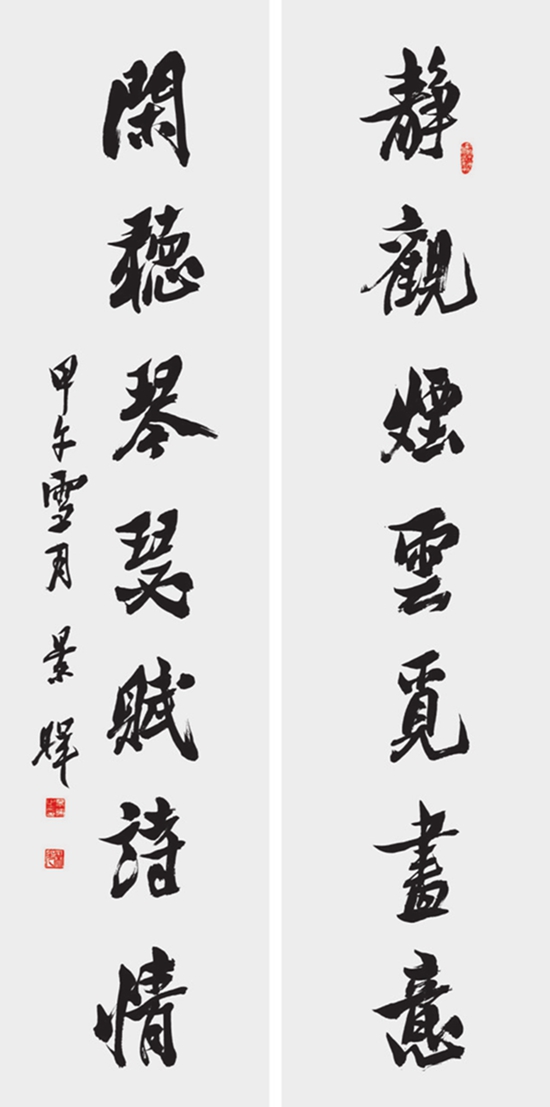 靜觀煙雲覓畫意
閑聽琴瑟賦詩情
甲午雪月 景暉